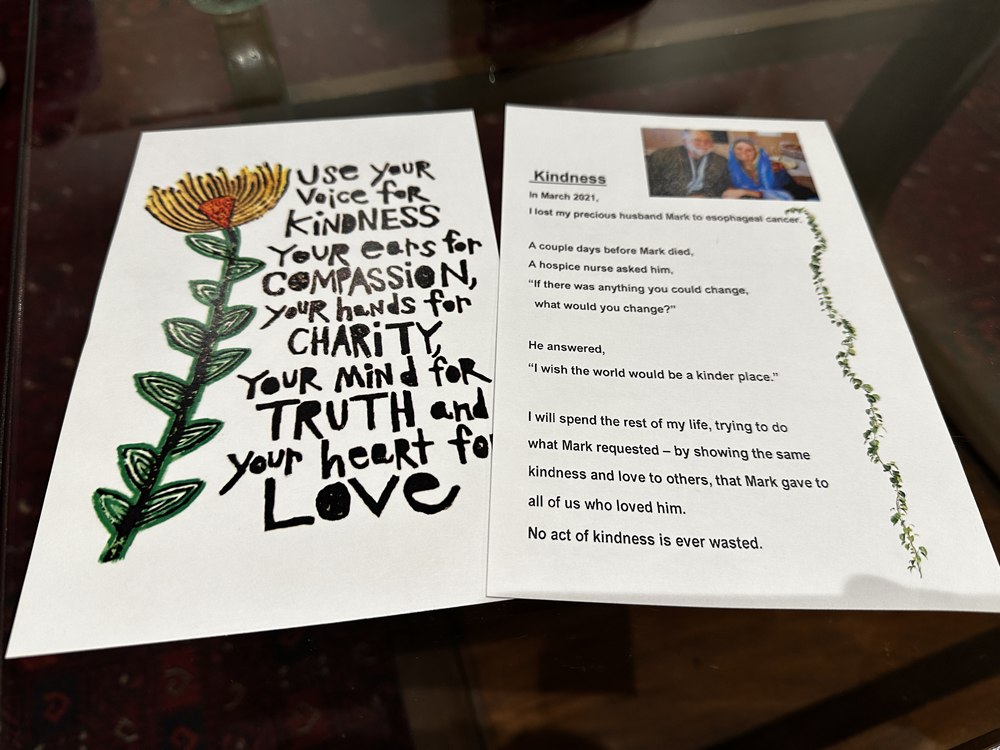 USE YOUR
Voice for
KiNDNESS
YOUR ears for
COMPASSiON,
your hands for
CHARiTY,
YOUR MiNd foR
TRUTH and
your heart fo
LOVe
Kindness
In March 2021,
I lost my precious husband Mark to esophageal cancer.
A couple days before Mark died,
A hospice nurse asked him,
“If there was anything you could change,
what would you change?”
He answered,
“I wish the world would be a kinder place.”
I will spend the rest of my life, trying to do
what Mark requested – by showing the same
kindness and love to others, that Mark gave to
all of us who loved him.
No act of kindness is ever wasted.